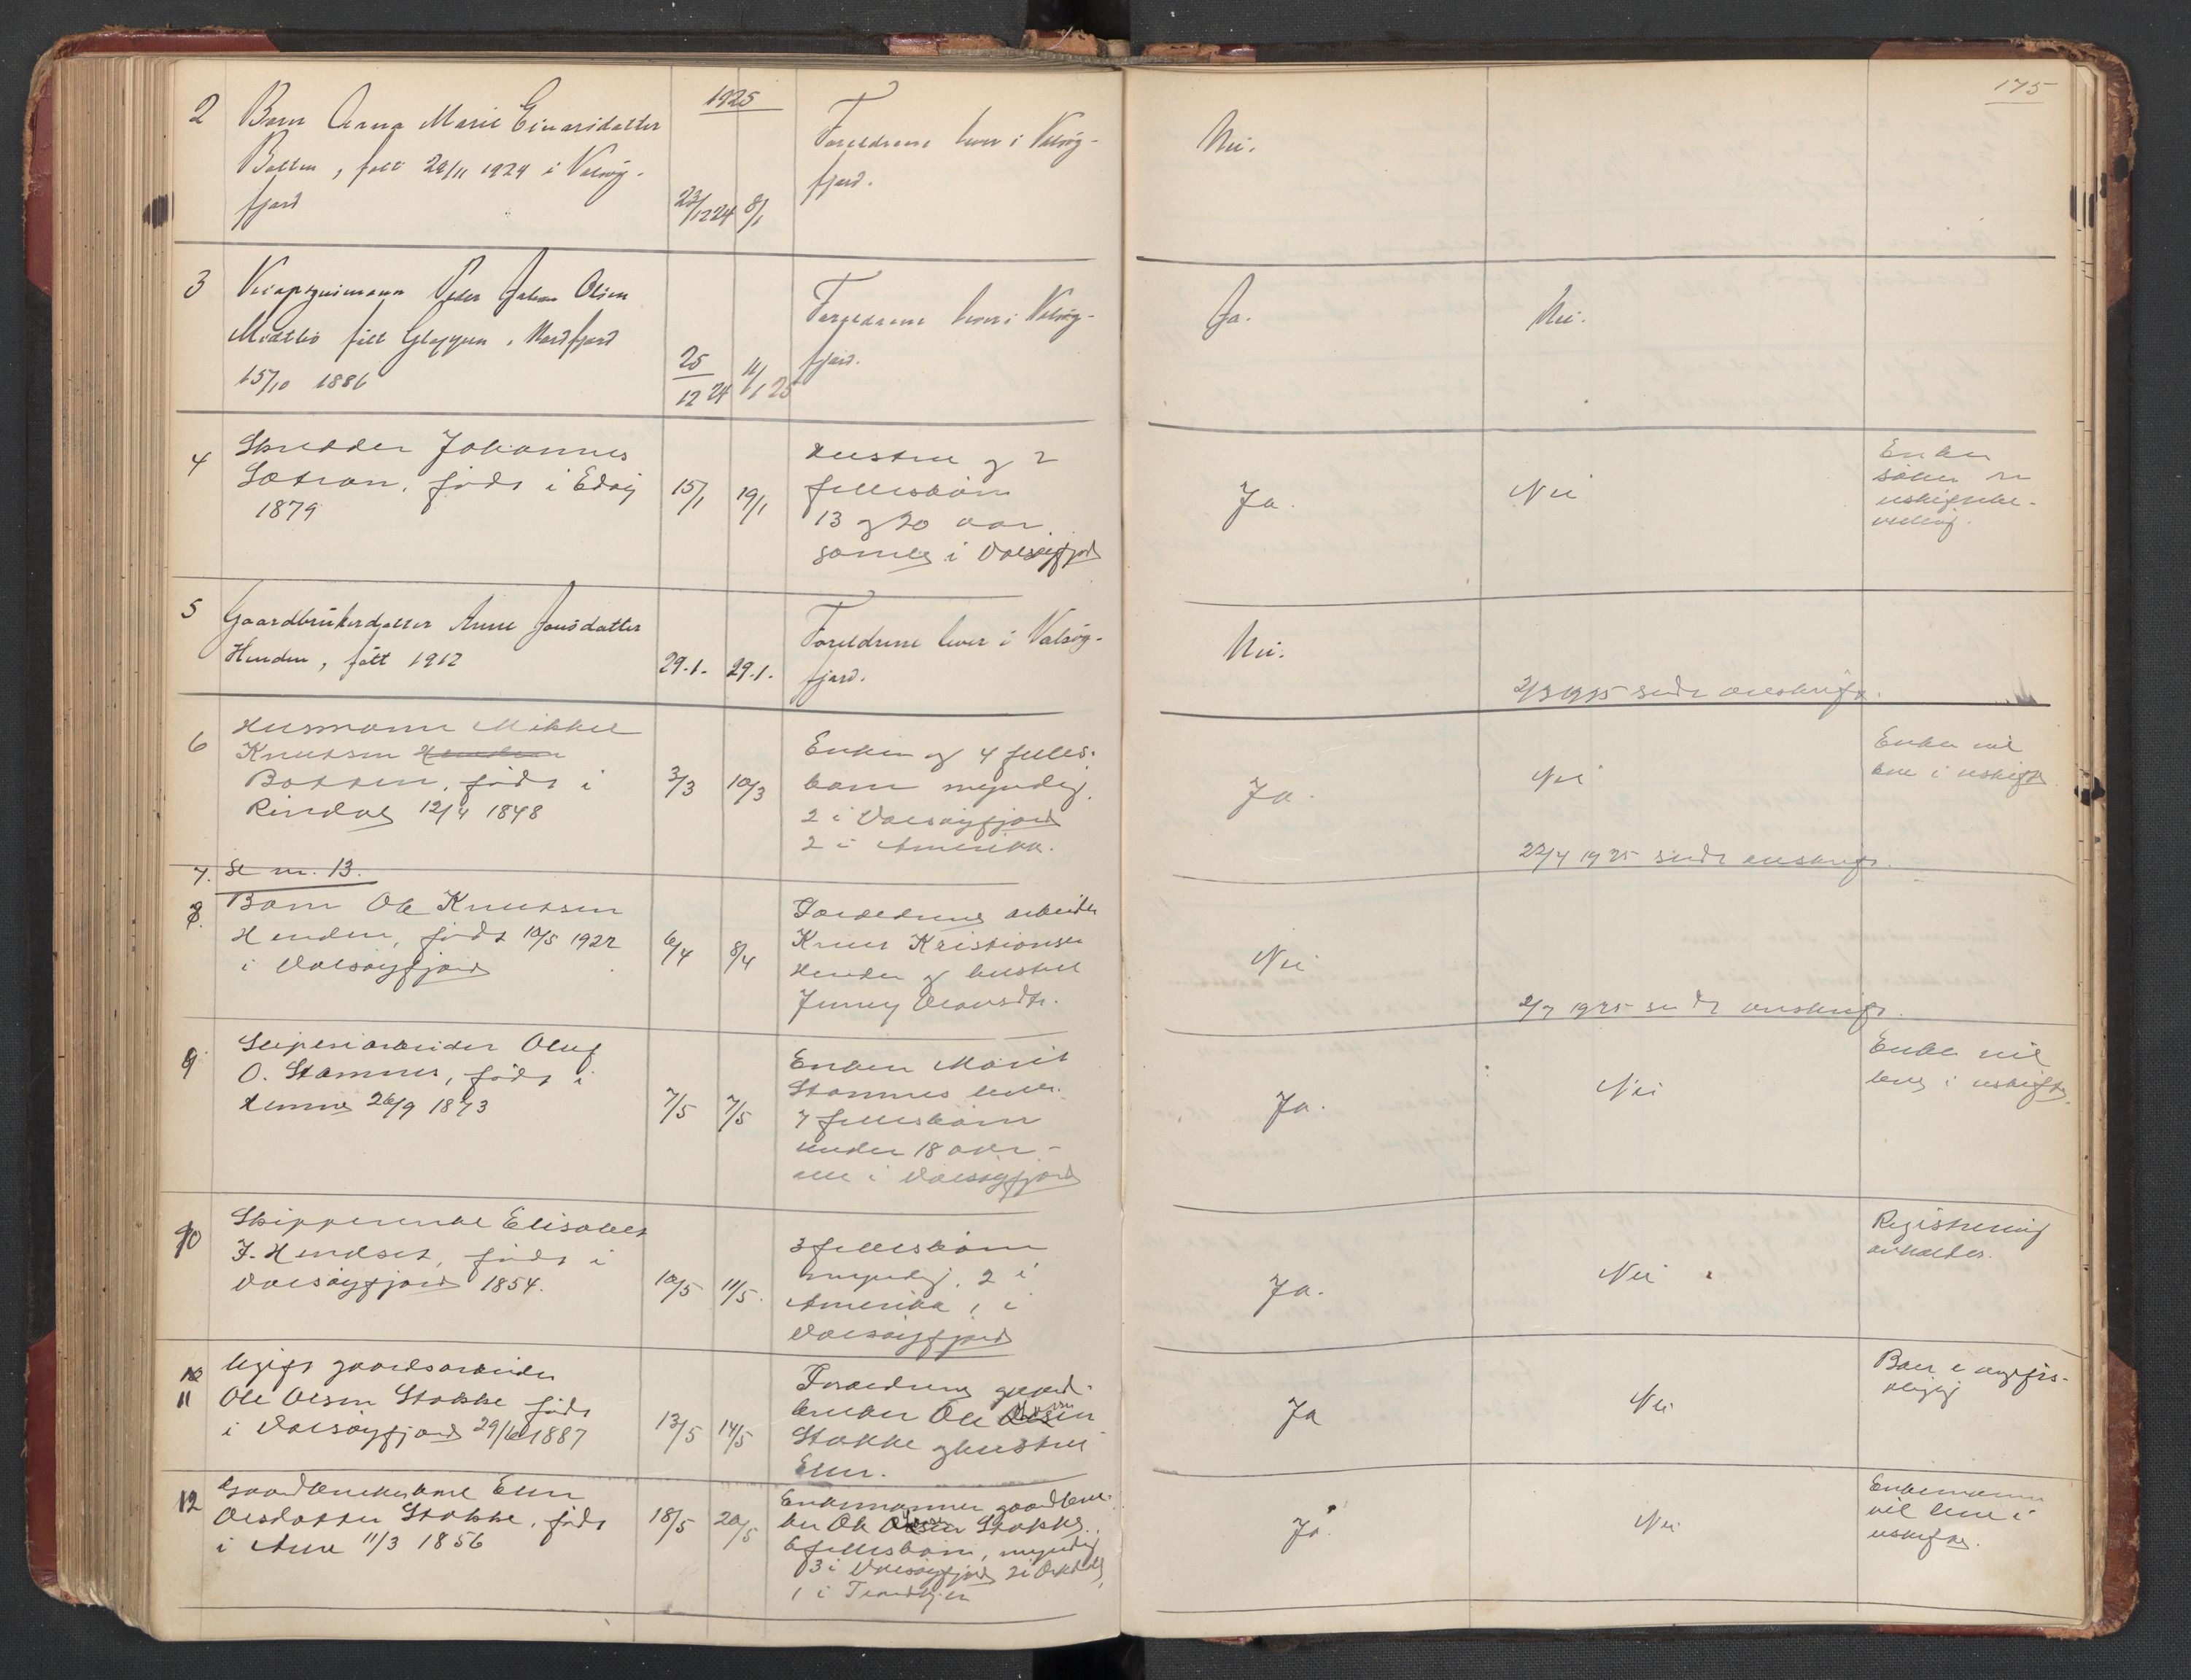 175
1925
2 Barn Anna Marie Einarsdatter
Botten, født 24/11 1924 i Valsøy-
fjord
23/12 24 8/1
Foreldrene lever i Valsøy-
fjord.
Nei.
3 Peder Johan Olsen
født Gloppen, Nordfjord
15/10 1886
25/12 24 11/1 25
Foreldrene lever i Valsøy-
fjord.
Ja. Nei.
4 Skredder Johannes
Sætran, født i Edøy
1879
15/1 19/1
Hustru og 2
fellesbørn
13 og 20 aar
samtlg i Valsøyfjord
Ja. Nei
Enken
søker om
uskifte-
5 Gaardbrukerdatter Anne Jonsdatter
Henden, født 1912
29.1. 29.1.
Foreldrene lever i Valsøy-
fjord.
Nei.
2/3 1925 sendt avskrift.
6 Husmann Mikkel
Knutsen Henden
Botten, født i
Rindal 12/4 1848
3/3 10/3
Enken og 4 felles-
barn myndig.
2 i Valsøyfjord
2 i Amerika.
Ja. Nei
Enken vil
leve i uskifte
22/4 1925 sendt avskrift.
7. Se nr. 13.
8. Barn Ole Knutsen
Henden, født 10/5 1922
i Valsøyfjord
6/4 8/4
Forældrene arbeider
Knut Kristiansen
Henden og hustru
Jenny Olausdtr.
Nei
2/7 1925 sendt avskrift.
9 Sliperiarbeider Oluf
O. Stamnes, født i
Hemne 26/9 1873
7/5 7/5
Enken Marit
Stamnes lever.
7 fellesbørn
under 18 aar -
alle i Valsøyfjord
Ja. Nei
Enken vil
leve i uskifte.
10 Skipperenke Elisabet
J. Hendset, født i
Valsøyfjord 1854.
10/5 11/5.
3 fellesbørn
myndig. 2 i
Amerika 1 i
Valsøyfjord
Ja. Nei
Registrering
avholdes.
11 Ugift gaardsarbeider
Ole Olsen Stokke født
i Valsøyfjord 29/6 1887
13/5 14/5
Forældrene gaard-
bruker Ole
Stokke og hustru
Elen.
Ja Nei
Boet er
12 Gaardbrukerkone Elen
Olsdatter Stokke, født
i Aure 11/3 1856
18/5 20/5
Enkemannen gaardbru-
ker Ole Stokke.
6 fellesbørn, myndig
3 i Valsøyfjord 2 i Orkdal,
1 i Trondhjem
Ja. Nei
Enkemannen
vil leve i
uskifte.